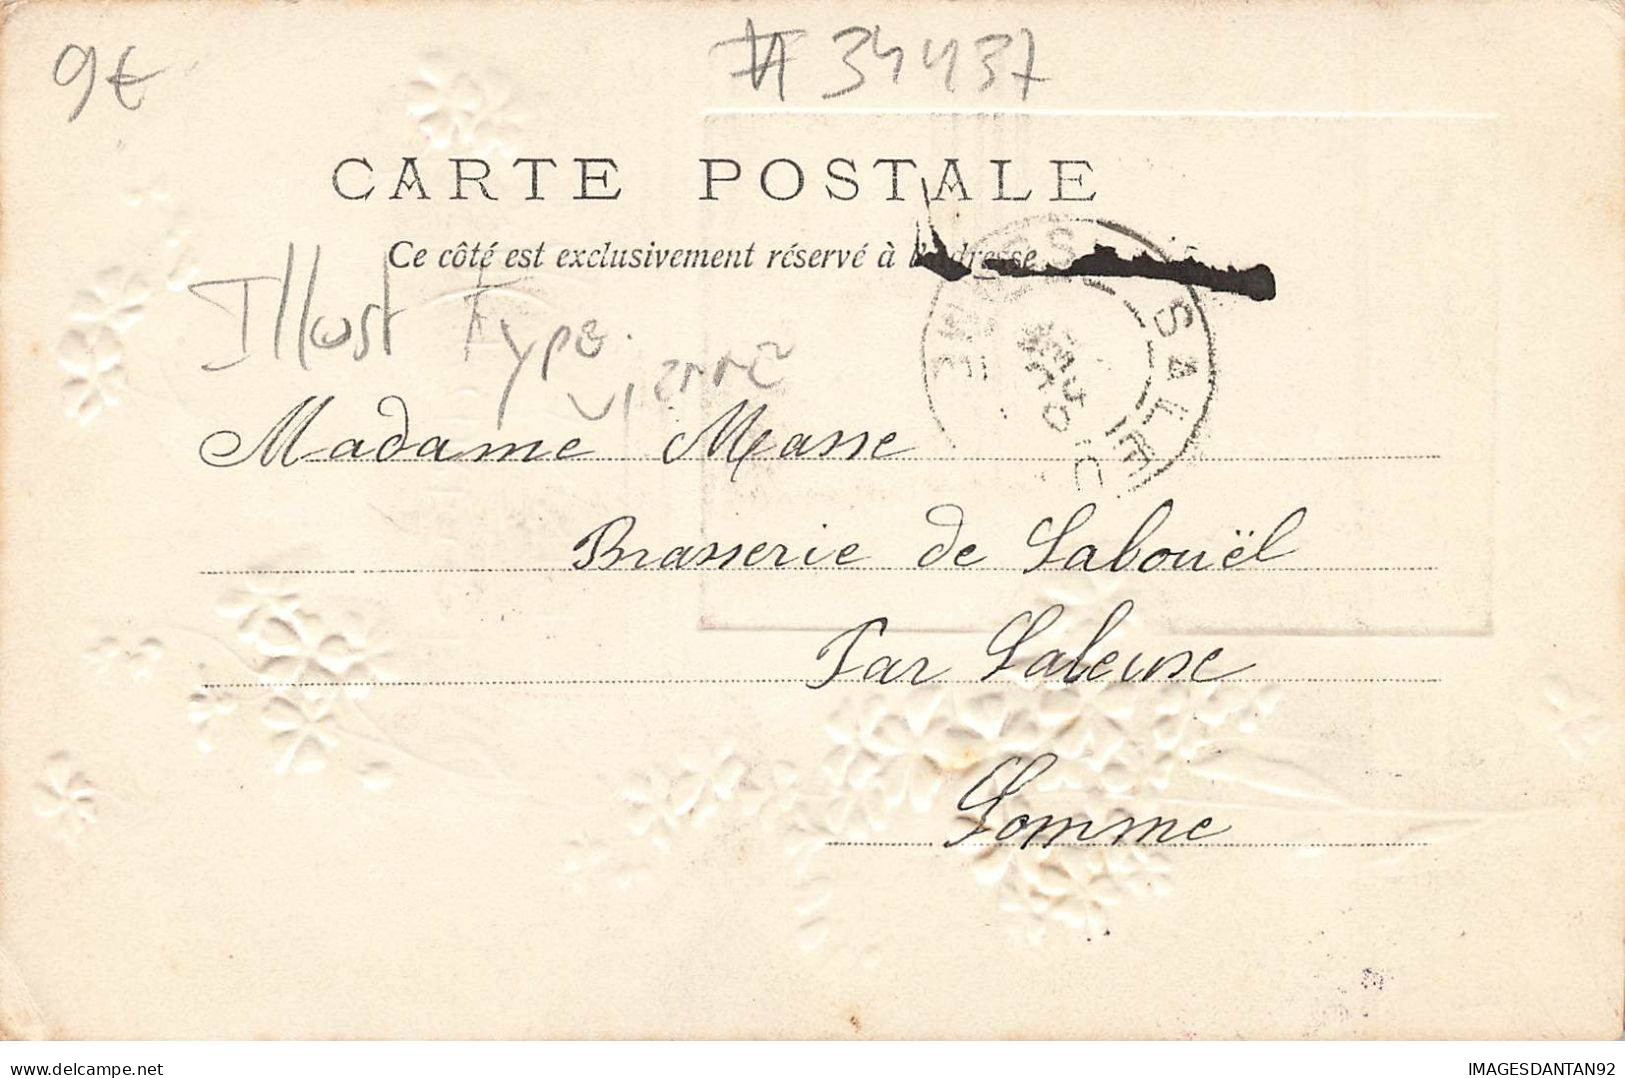 9€
# 34437
CARTE POSTALE
Ce côté est exclusivement réservé à l'adresse
Illust Type
vienne
Madame Masse
Brasserie de Labouël
Par Saleuse
Somme
delcampe.net
IMAGESDANTAN92